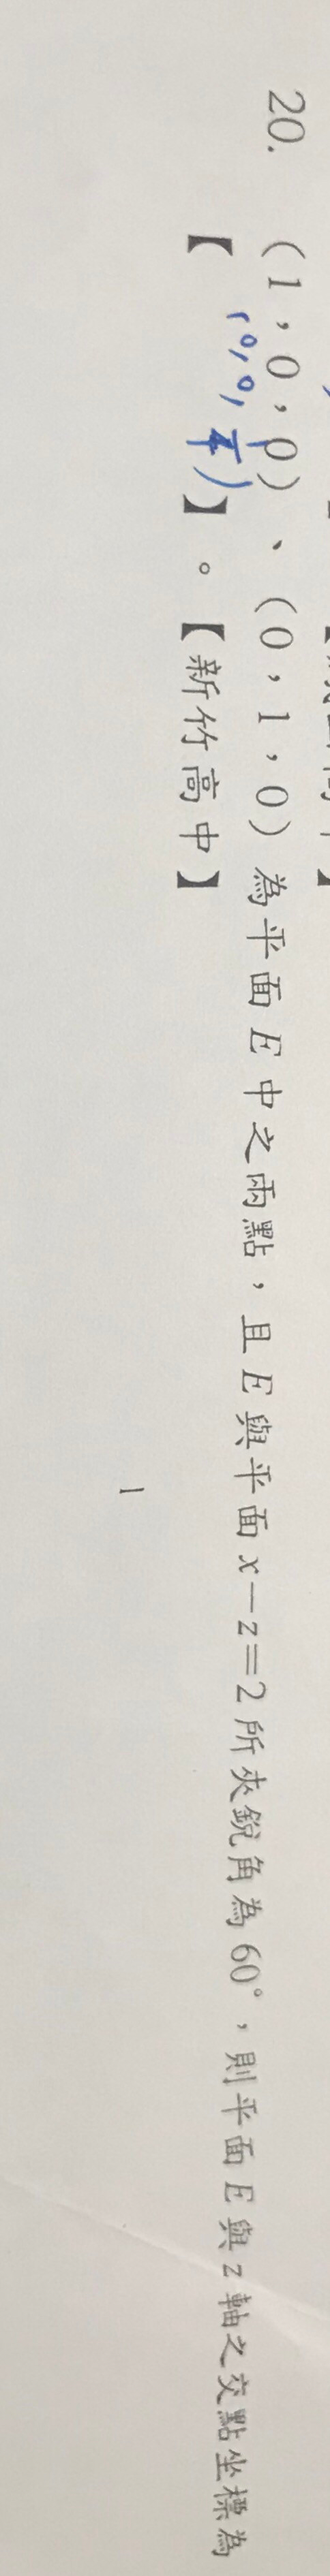 20. (1，0，0)、(0，1，0)為平面E中之兩點，且E與平面x－z＝2所夾銳角為60°，則平面E與z軸之交點坐標為
【(0,0,】。【新竹高中】